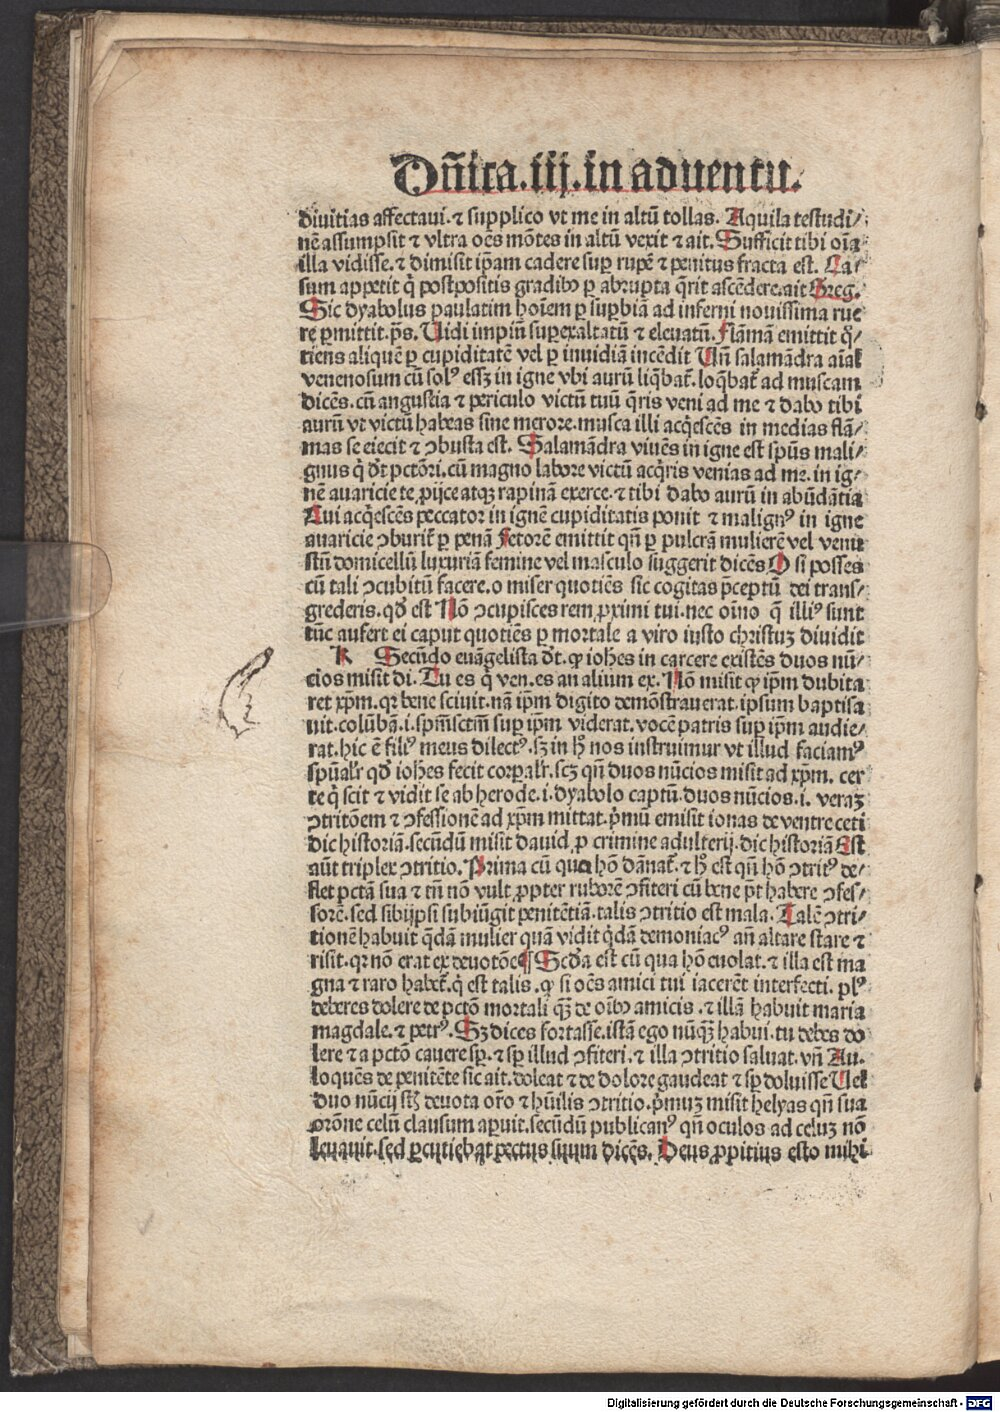 Dñica.iij.in aduentu.
diuitias affectaui.⁊ supplico vt me in altũ tollas. Aquila testudi/
nẽ assumpsit ⁊ vltra oẽs mõtes in altũ vexit ⁊ ait. Sufficit tibi oĩa
illa vidisse.⁊ dimisit ip̃am cadere suꝑ rupẽ ⁊ penitus fracta est. Ca/
sum appetit q̇ postpositis gradibꝰ ꝑ abrupta q̃rit ascẽdere.ait Greg.
Sic dyabolus paulatim hoĩem ꝑ supbiã ad inferni nouissima rue
re ꝑmittit.p̃s. Uidi impiũ suꝑexaltatũ ⁊ eleuatũ. Flãmã emittit q̊/
tiens aliquẽ ꝑ cupiditatẽ vel ꝑ inuidiã incẽdit Uñ salamãdra aĩal
venenosum cũ solꝰ essꝫ in igne vbi aurũ liq̃bat̃.loq̃bat̃ ad muscam
dicẽs.cũ angustia ⁊ periculo victũ tuũ q̃ris veni ad me ⁊ dabo tibi
aurũ vt victũ habeas sine merore.musca illi acq̇escẽs in medias flã/
mas se eiecit ⁊ ɔbusta est. Salamãdra viuẽs in igne est sp̃us mali/
gnus q̇ dt̃ pctõri.cũ magno labore victũ acq̇ris venias ad me.in ig/
nẽ auaricie te ꝓijce atqꝫ rapinã exerce.⁊ tibi dabo aurũ in abũdãtia
Cui acq̇escẽs peccator in ignẽ cupiditatis ponit ⁊ malignꝰ in igne
auaricie ɔburit̃ ꝑ penã Fetorẽ emittit qñ ꝑ pulcrã mulierẽ vel venu
stũ domicellũ luxuriã femine vel masculo suggerit dicẽs O si posses
cũ tali ɔcubitũ facere.o miser quotiẽs sic cogitas p̃ceptũ dei trans/
grederis.qđ est Nõ ɔcupisces rem ꝓximi tui.nec oĩno q̃ illiꝰ sunt
tũc aufert ei caput quotiẽs ꝑ mortale a viro iusto christuꝫ diuidit
K Secũdo euãgelista dt̃.ꝙ iohẽs in carcere existẽs duos nũ/
cios misit di. Tu es q̇ ven.es an alium ex. Nõ misit ꝙ ip̃m dubita
ret xp̃m.qꝛ bene sciuit.nã ip̃m digito demõstrauerat.ipsum baptisa
uit.colũbã.i.sp̃m sctm̃ suꝑ ip̃m viderat.vocẽ patris suꝑ ip̃m audie/
rat.hic ẽ filiꝰ meus dilectꝰ.sꝫ in hͦ nos instruimur vt illud faciamꝰ
spũalr̃ qđ iohẽs fecit corꝑalr̃.scꝫ qñ duos nũcios misit ad xp̃m. cer
te q̇ scit ⁊ vidit se ab herode.i.dyabolo captũ.duos nũcios.i. veraꝫ
ɔtritõem ⁊ ɔfessionẽ ad xp̃m mittat.p̃mũ emisit ionas de ventre ceti
dic historiã.secũdũ misit dauid ꝓ crimine adulterij.dic historiã Est
aũt triplex ɔtritio. Prima cũ qua hõ dãnat̃.⁊ hͦ est qñ hõ ɔtritꝰ de/
flet pctã sua ⁊ tñ nõ vult ꝓpter ruborẽ ɔfiteri cũ bene pt̃ habere ɔfes/
sorẽ.sed sibijpsi subiũgit penitẽtiã.talis ɔtritio est mala. Talẽ ɔtri/
tionẽ habuit q̃dã mulier quã vidit q̇dã demoniacꝰ añ altare stare ⁊
risit.qꝛ nõ erat ex deuotõe ¶ Scđa est cũ qua hõ euolat.⁊ illa est ma
gna ⁊ raro habet̃.q̇ est talis.ꝙ si oẽs amici tui iacerẽt interfecti. plꝰ
deberes dolere de pctõ mortali q̃ꝫ de oĩbꝰ amicis.⁊ illã habuit maria
magdale.⁊ petrꝰ. Sꝫ dices fortasse.istã ego nũq̃ꝫ habui.tu debes do
lere ⁊ a pctõ cauere sꝑ.⁊ sꝑ illud ɔfiteri.⁊ illa ɔtritio saluat.vñ Au.
loquẽs de penitẽte sic ait.doleat ⁊ de dolore gaudeat ⁊ sꝑ doluisse Uel
duo nũcij st̃ deuota or̃o ⁊ hũilis ɔtritio.p̃muꝫ misit helyas qñ sua
orõne celũ clausum aꝑuit.secũdũ publicanꝰ qñ oculos ad celuꝫ nõ
leuauit.sed ꝑcutiebat pectus suum dicẽs. Deus ꝓpitius esto mihi
Digitalisierung gefördert durch die Deutsche Forschungsgemeinschaft - DFG